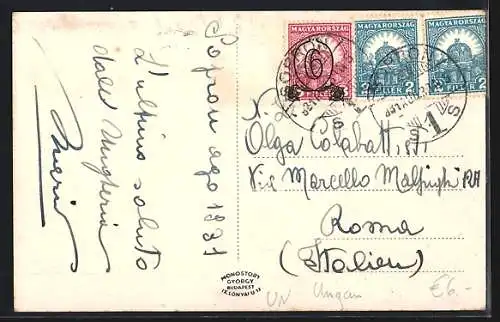 Sopron ago 1931
L'ultimo saluto
dall' Ungheria
MAGYARORSZÁG
6
MAGYARORSZÁG
2 FILLÉR 2
MAGYARORSZÁG
2 FILLÉR 2
SOPRON
1
Olga
Via Marcello Malpighi
Roma
(Italien)
MONOSTORY
GYÖRGY
BUDAPEST
Ungarn
€6.-